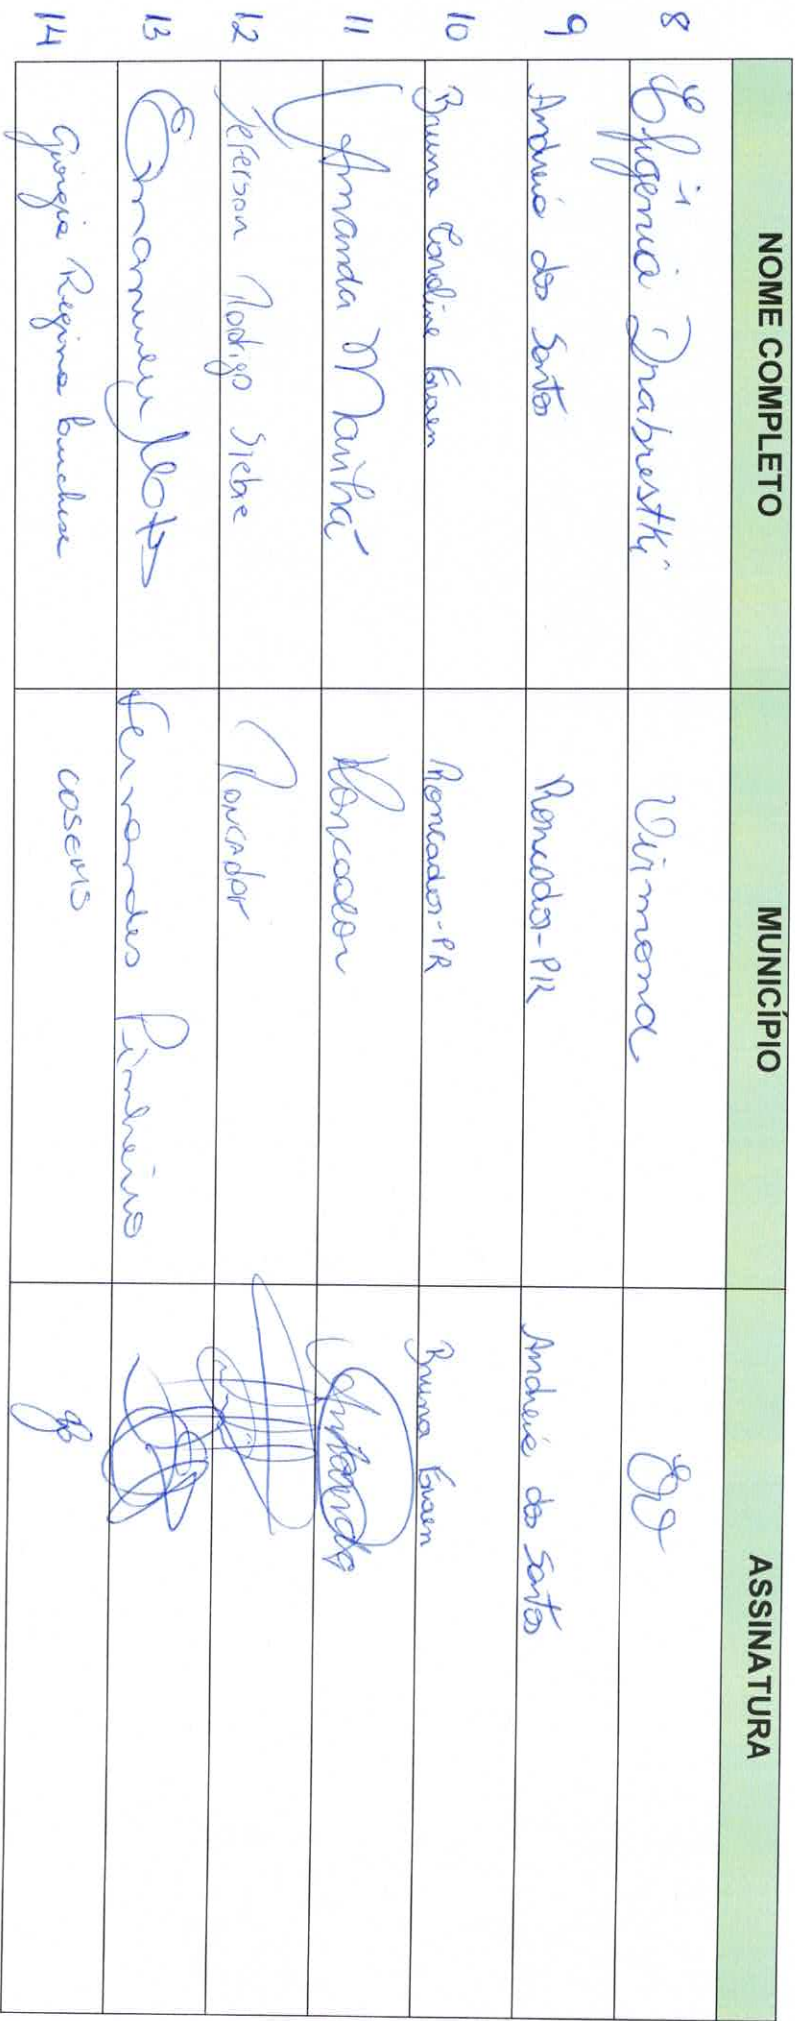 NOME COMPLETO MUNICÍPIO ASSINATURA
8 Efigenia Drabrestki Virmond
9 Andreia dos Santos Roncador-PR Andreia dos Santos
10 Bruna Caroline Roncador-PR Bruna
11 Amanda Mariha Roncador Amanda
12 Jeferson Rodrigo Siebre Roncador
13 Fernandes Pinheiro
14 Giorgia Regina Luchese COSEMS